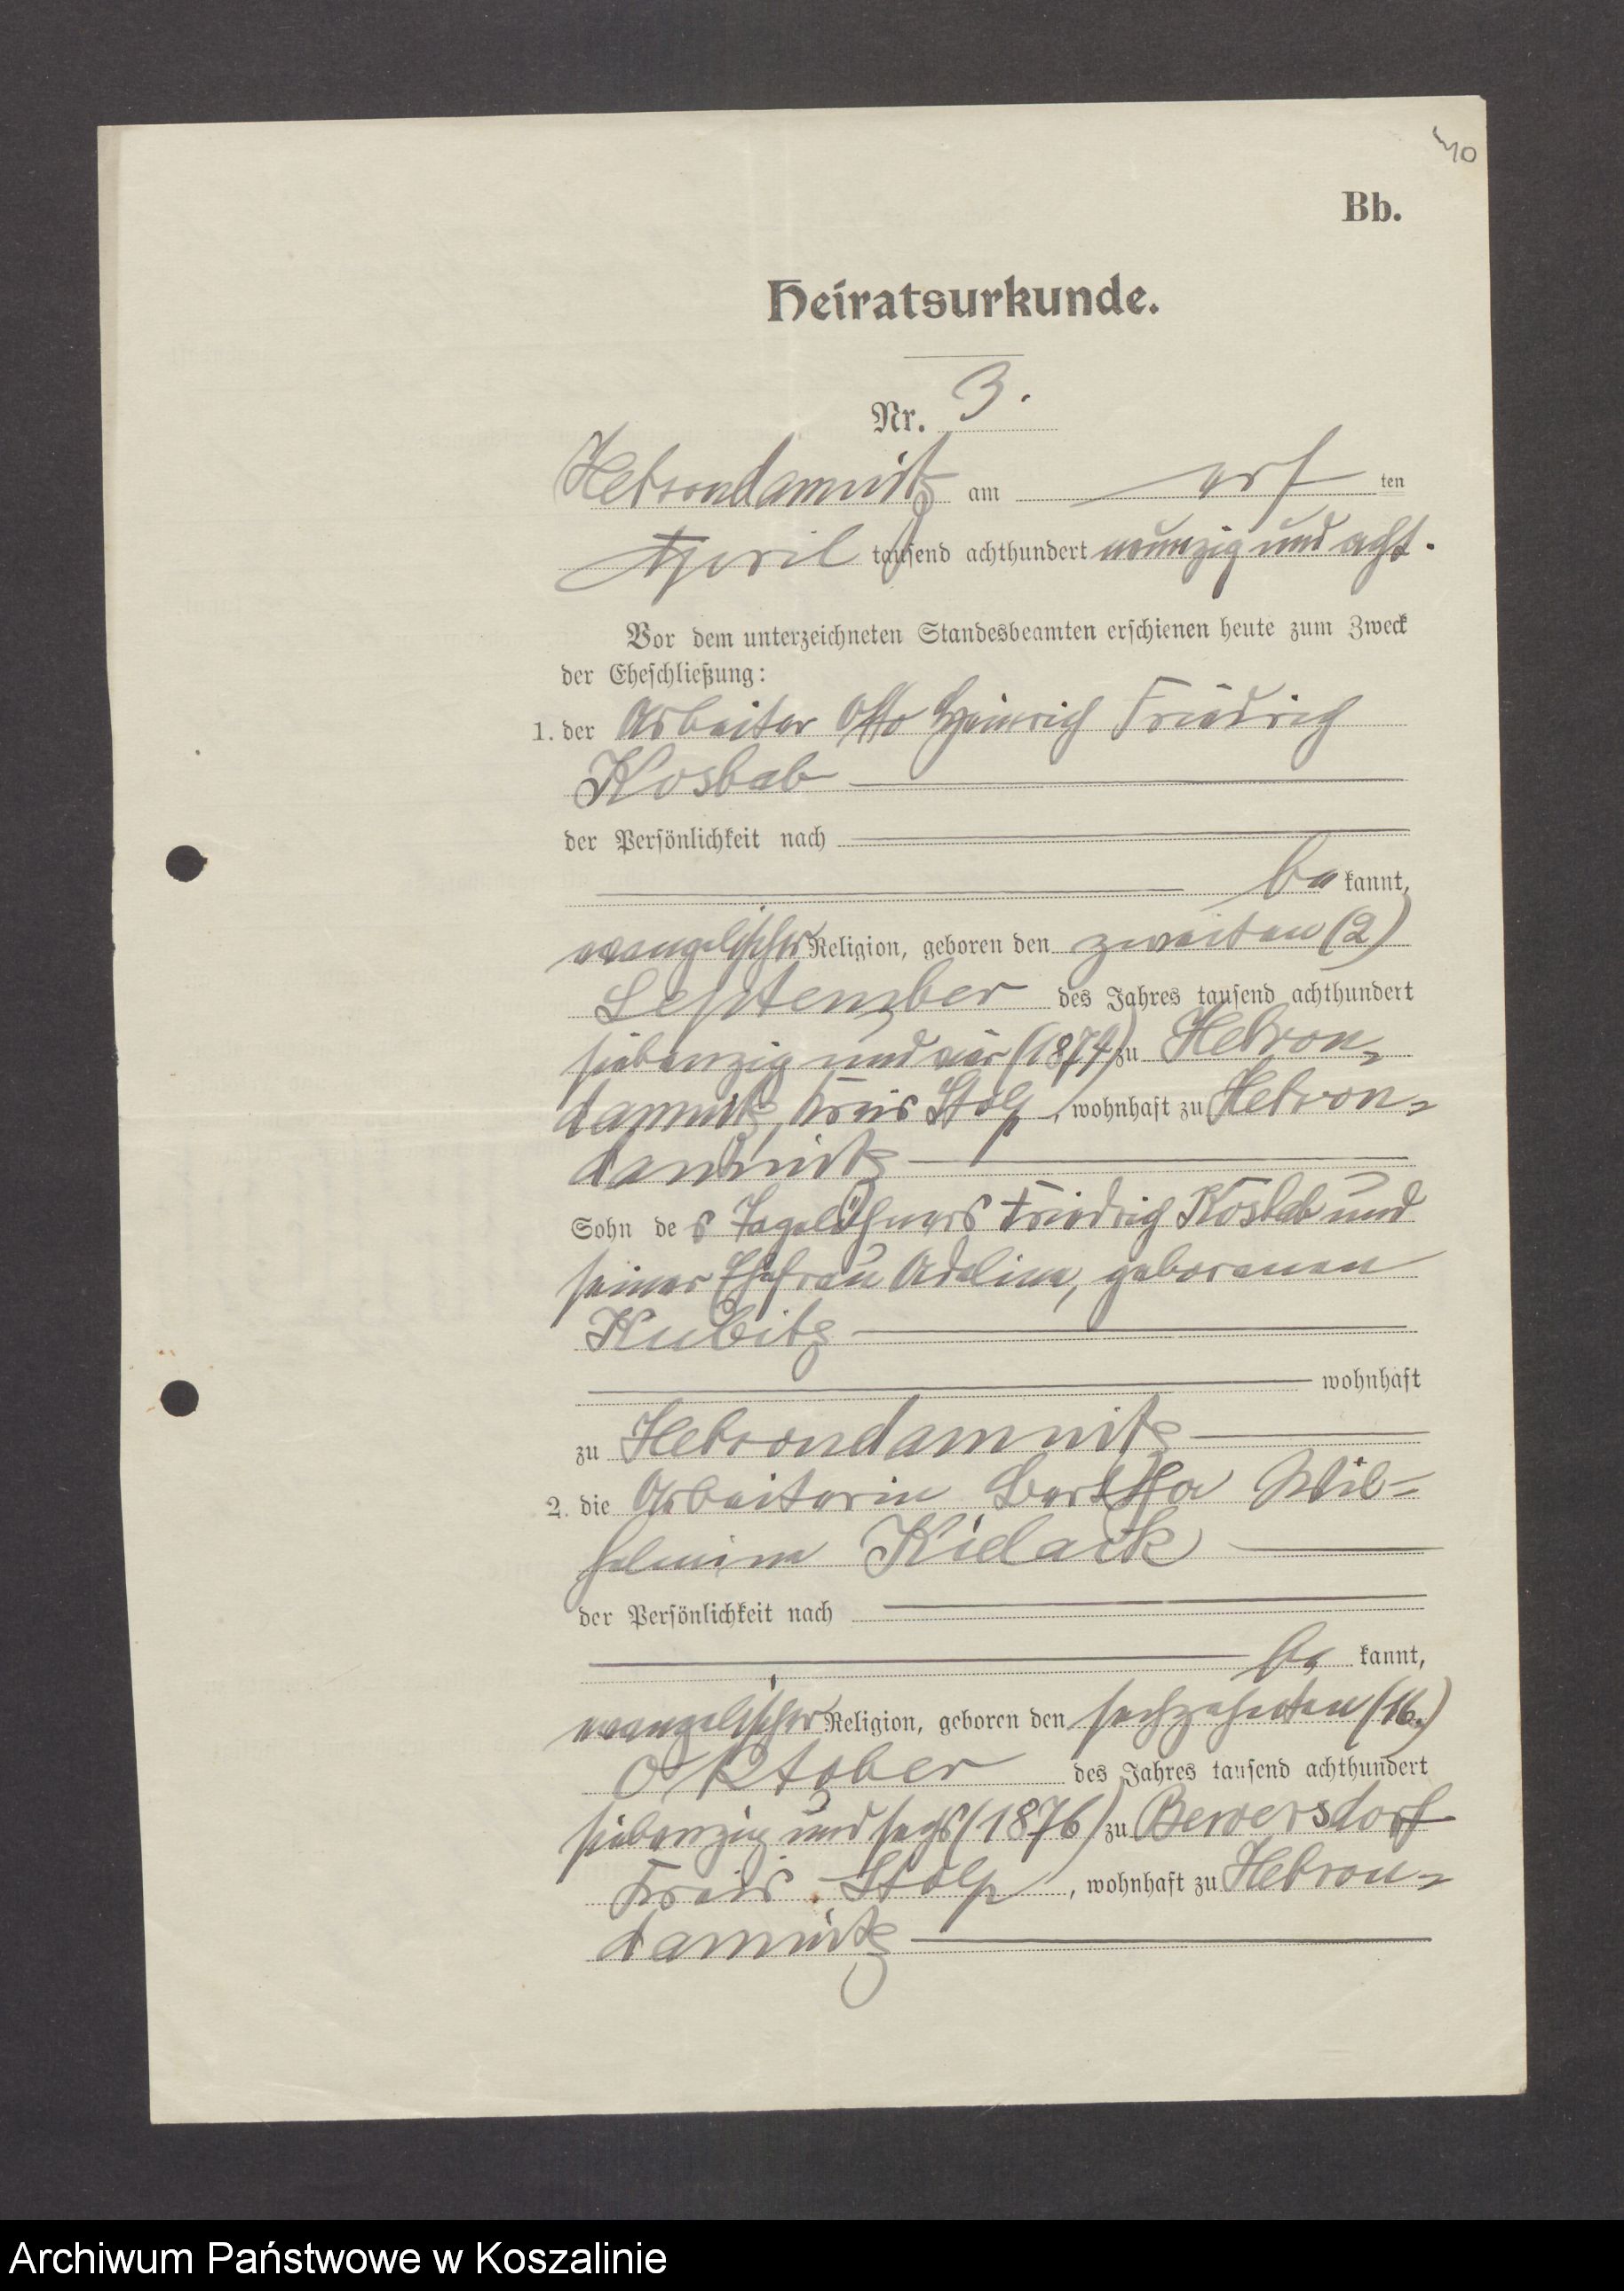 40
Bb.
Heiratsurkunde.
Nr. 3.
Hebrondamnitz am acht ten
April tausend achthundert neunzig und acht.
Vor dem unterzeichneten Standesbeamten erschienen heute zum Zweck
der Eheschließung:
1. der Arbeiter Otto Heinrich Friedrich
Kosbab
der Persönlichkeit nach
be kannt,
evangelischer Religion, geboren den zweiten (2)
September des Jahres tausend achthundert
siebenzig und vier (1874) zu Hebron-
damnitz, Kreis Stolp, wohnhaft zu Hebron-
damnitz
Sohn des Tagelöhners Friedrich Kosbab und
seiner Ehefrau Adeline, geborenen
Kubitz
wohnhaft
zu Hebrondamnitz
2. die Arbeiterin Bertha Wil-
helmine Kielack
der Persönlichkeit nach
be kannt,
evangelischer Religion, geboren den sechzehnten (16.)
Oktober des Jahres tausend achthundert
siebenzig und sechs (1876) zu Bewersdorf
Kreis Stolp, wohnhaft zu Hebron-
damnitz
Archiwum Państwowe w Koszalinie